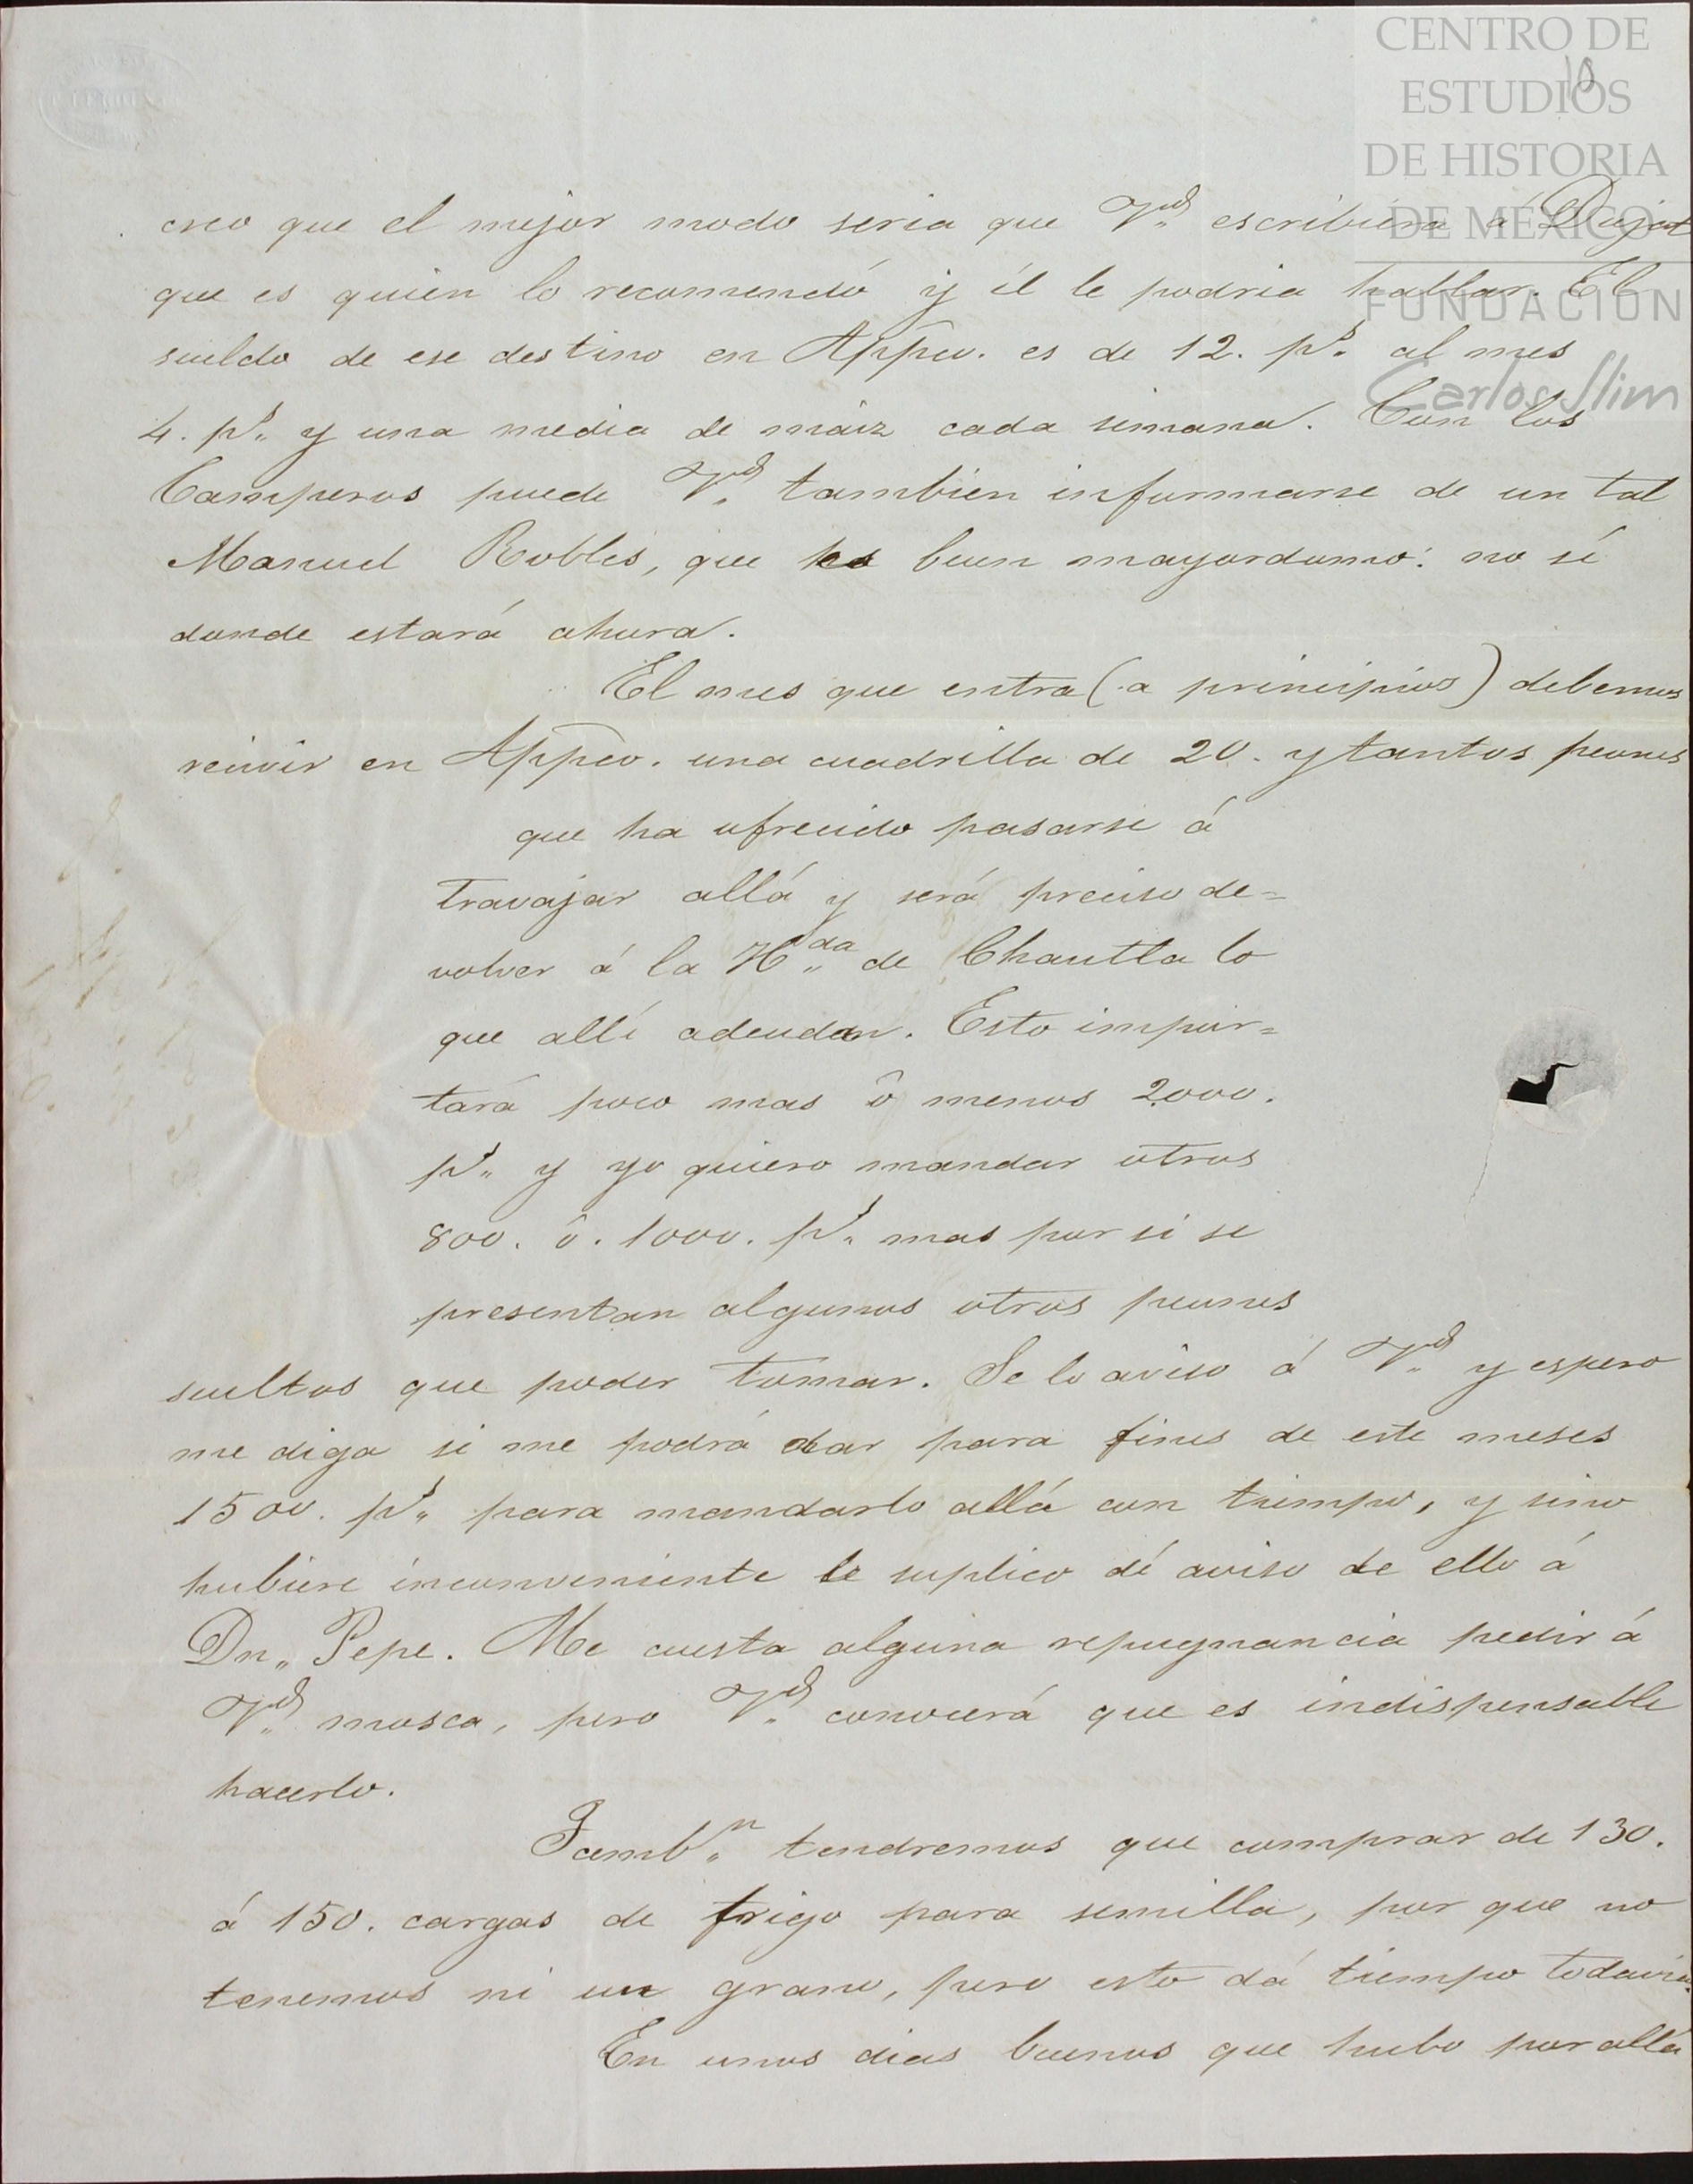 CENTRO DE
ESTUDIOS
DE HISTORIA
DE MÉXICO
FUNDACIÓN
Carlos Slim
10
creo que el mejor modo seria que Vd. escribiera á Dujat
que es quien lo recomendó y él le podria hallar. El
sueldo de ese destino en Appeo. es de 12. ps. al mes
4. ps. y una media de maiz cada semana. Con los
Camperos puede Vd. tambien informarse de un tal
Manuel Robles, que es buen mayordomo: no sé
donde estará ahora.
El mes que entra (a principios) debemos
recivir en Appeo. una cuadrilla de 20. y tantos peones
que ha ofrecido pasarse á
travajar allá y será preciso de=
volver á la H.da de Chautla lo
que allí adeudan. Esto impor=
tará poco mas ô menos 2000.
ps. y yo quiero mandar otros
800. ô. 1000. ps. mas por si se
presentan algunos otros peones
sueltos que poder tomar. Se lo aviso á Vd. y espero
me diga si me podrá dar para fines de este meses
1500. ps. para mandarlo allá con tiempo, y sino
hubiere inconveniente le suplico dé aviso de ello á
Dn. Pepe. Me cuesta alguna repugnancia pedir á
Vd. mosca, pero Vd. conocerá que es indispensable
hacerlo.
Tamb.n tendremos que comprar de 130.
á 150. cargas de trigo para semilla, por que no
tenemos ni un grano, pero esto dá tiempo todavia.
En unos dias buenos que hubo por allá